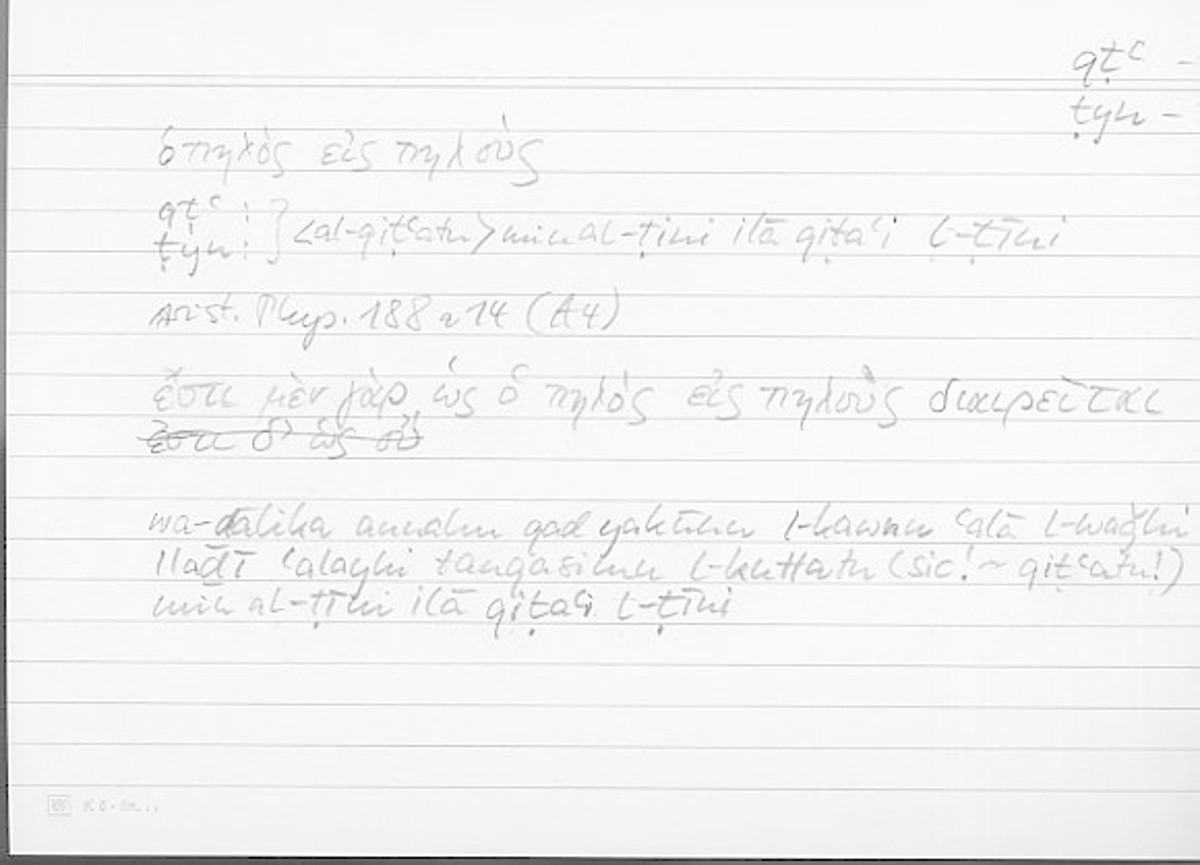 qṭʿ –
ṭyn –
ὁ πηλὸς εἰς πηλοὺς
qṭʿ :
ṭyn : } <al-qiṭʿatu> min al-ṭīni ilā qiṭaʿi l-ṭīni
Arist. Phys. 188 a 14 (A4)
ἔστι μὲν γὰρ ὡς ὁ πηλὸς εἰς πηλοὺς διαιρεῖται
ἔστι δ' ὡς οὔ
wa-ḏālika annahu qad yakūnu l-kawnu ʿalā l-waǧhi
llaḏī ʿalayhi tanqasimu l-kuttatu (sic! ~ qiṭʿatu!)
min al-ṭīni ilā qiṭaʿi l-ṭīni